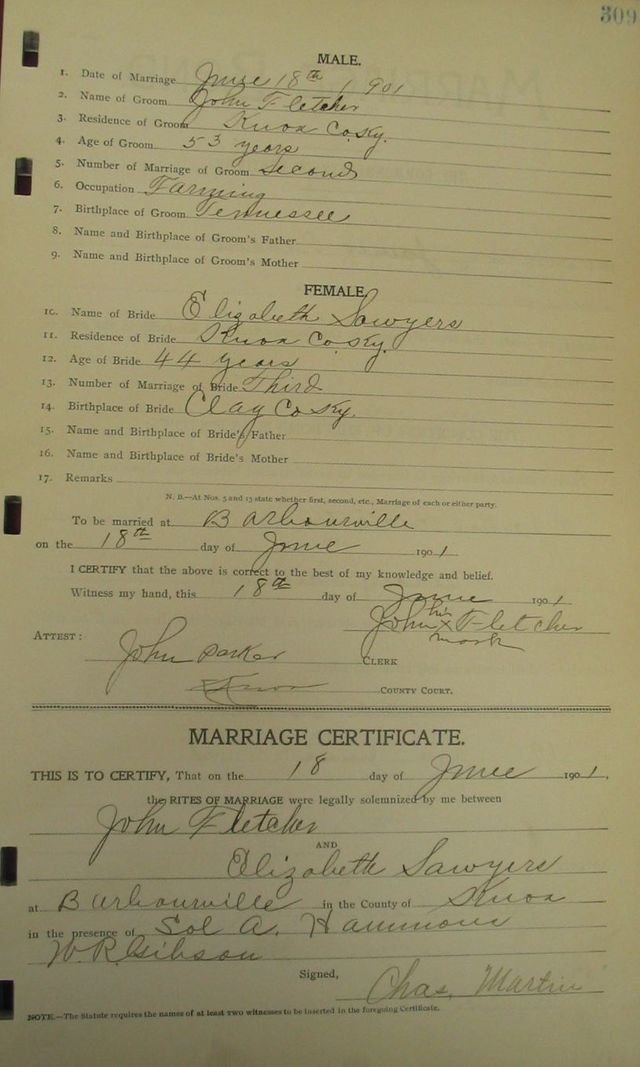 309
MALE.
1. Date of Marriage June 18th 1901
2. Name of Groom John Fletcher
3. Residence of Groom Knox Co. Ky.
4. Age of Groom 53 years
5. Number of Marriage of Groom Second
6. Occupation Farming
7. Birthplace of Groom Tennessee
8. Name and Birthplace of Groom's Father
9. Name and Birthplace of Groom's Mother
FEMALE.
10. Name of Bride Elizabeth Sawyers
11. Residence of Bride Knox Co. Ky.
12. Age of Bride 44 years
13. Number of Marriage of Bride Third
14. Birthplace of Bride Clay Co Ky.
15. Name and Birthplace of Bride's Father
16. Name and Birthplace of Bride's Mother
17. Remarks
N. B.—At Nos. 5 and 13 state whether first, second, etc., Marriage of each or either party.
To be married at Barbourville
on the 18th day of June 1901
I CERTIFY that the above is correct to the best of my knowledge and belief.
Witness my hand, this 18th day of June 1901
his
John x Fletcher
mark
ATTEST:
John Parker CLERK
Knox COUNTY COURT.
MARRIAGE CERTIFICATE.
THIS IS TO CERTIFY, That on the 18 day of June 1901,
the RITES OF MARRIAGE were legally solemnized by me between
John Fletcher
AND
Elizabeth Sawyers
at Barbourville in the County of Knox
in the presence of Sol A. Hammons
W. R. Gibson
Signed,
Chas. Martin
NOTE.—The Statute requires the names of at least two witnesses to be inserted in the foregoing Certificate.